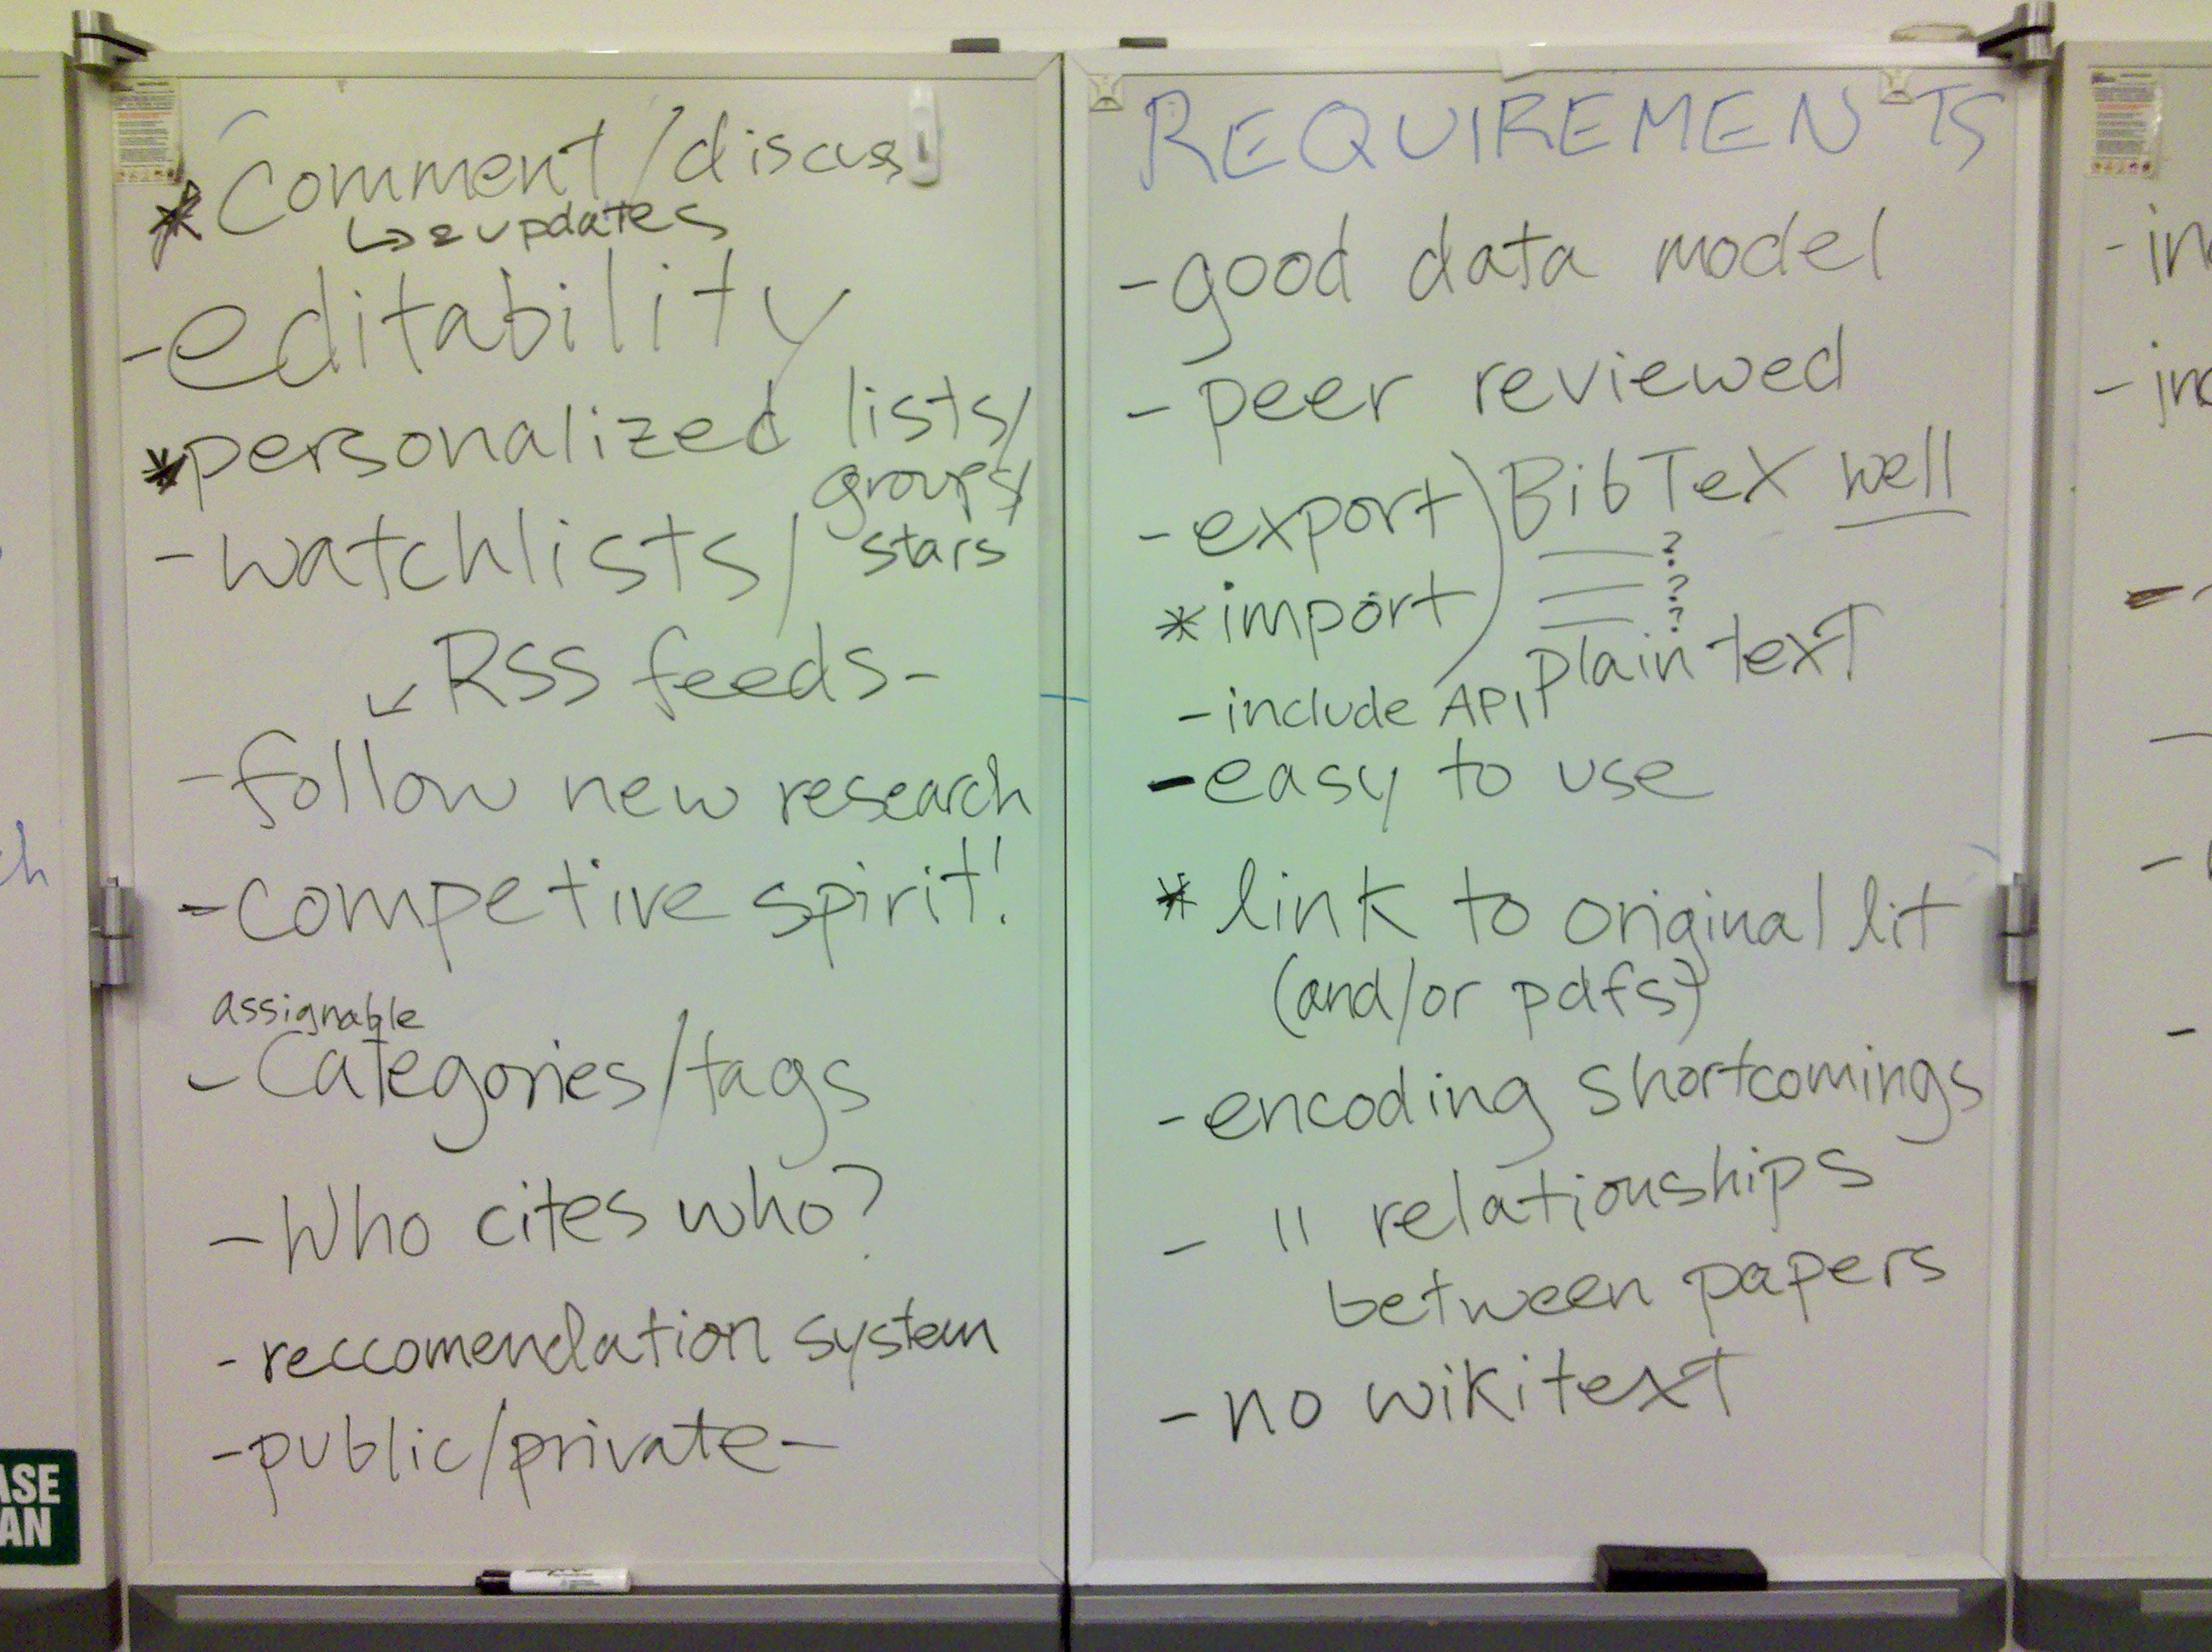 * Comment/discuss
↳ & updates
- editability
* personalized lists/
groups/
- watchlists/ stars
↙ RSS feeds -
- follow new research
- competive spirit!
assignable
- Categories/tags
- Who cites who?
- reccomendation system
- public/private -
REQUIREMENTS
- good data model
- peer reviewed
- export) BibTeX well
?
?
* import) ?
plain text
- include API,
- easy to use
* link to original lit
(and/or pdfs)
- encoding shortcomings
- " relationships
between papers
- no wikitext
- in
- in
ch
ASE
AN